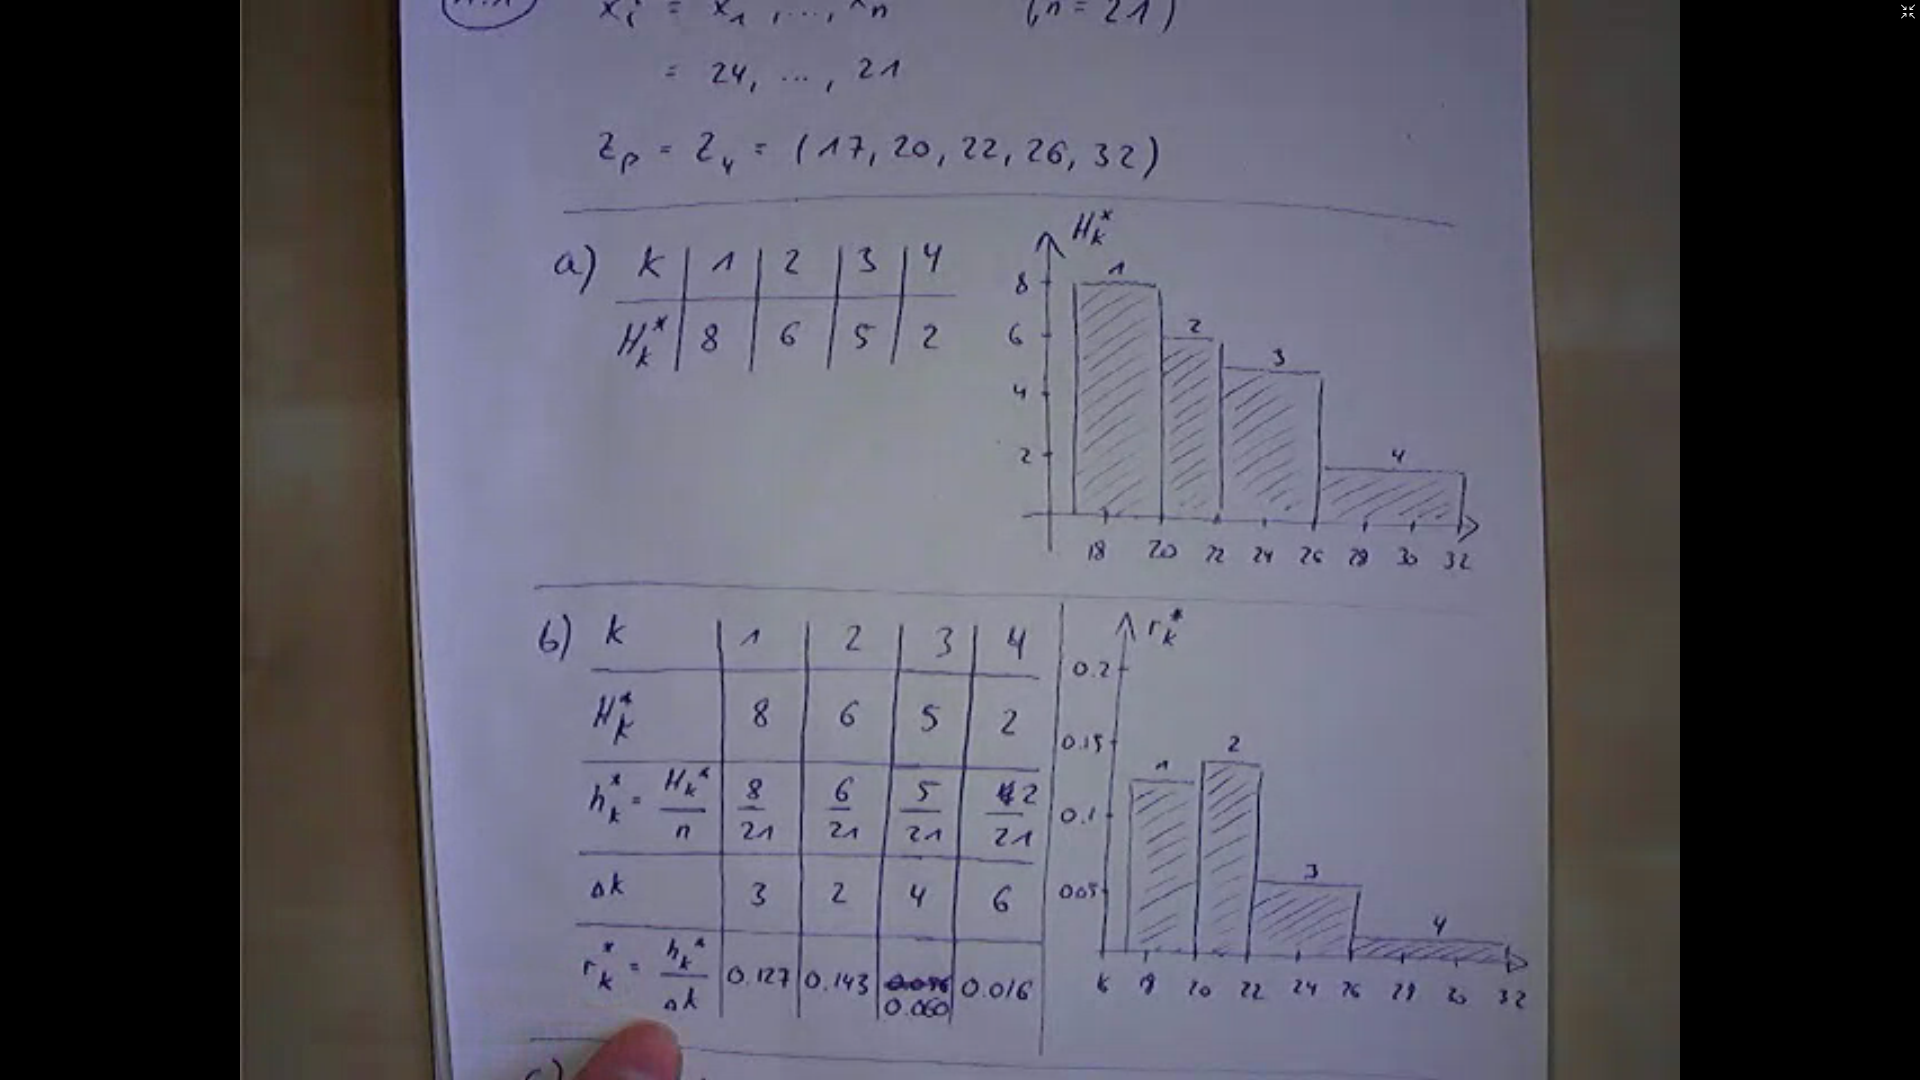 x_i = x_1, ..., x_n (n = 21)
= 24, ..., 21
Z_p = Z_4 = (17, 20, 22, 26, 32)
a) k | 1 | 2 | 3 | 4
H_k^* | 8 | 6 | 5 | 2
H_k^*
8
6
4
2
1 2 3 4
18 20 22 24 26 28 30 32
b) k | 1 | 2 | 3 | 4
H_k^* | 8 | 6 | 5 | 2
h_k^* = H_k^*/n | 8/21 | 6/21 | 5/21 | 2/21
Δk | 3 | 2 | 4 | 6
r_k^* = h_k^*/Δk | 0.127 | 0.143 | 0.060 | 0.016
r_k^*
0.2
0.15
0.1
005
1 2 3 4
18 20 22 24 26 28 30 32
c)